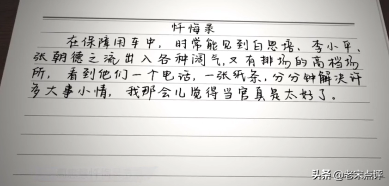 忏悔录
在保障用车中,时常能见到白思禧、李小平、
张朝德之流出入各种阔气,又有排场的高档场
所,看到他们一个电话,一张纸条,分分钟解决许
多大事小情,我那会儿觉得当官真是太好了。
头条 @老宋点评